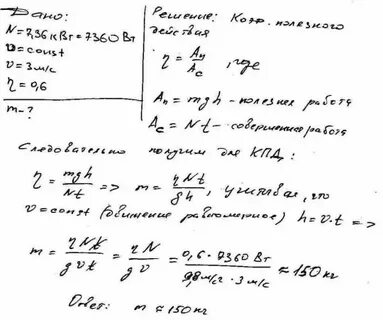 Дано:
N=7,36кВт=7360 Вт
υ=const
υ=3 м/с
η=0,6
m-?
Решение: Коэф. полезного
действия
η = Aп/Ac, где
Aп = mgh - полезная работа
Ac = Nt - совершенная работа
Следовательно получим для КПД:
η = mgh/Nt => m = ηNt/gh, учитывая, что
υ=const (движение равномерное) h=υ·t =>
m = ηNt/gυt = ηN/gυ = 0,6·7360 Вт/9,8м/с²·3м/с ≈ 150 кг
Ответ: m ≈ 150 кг